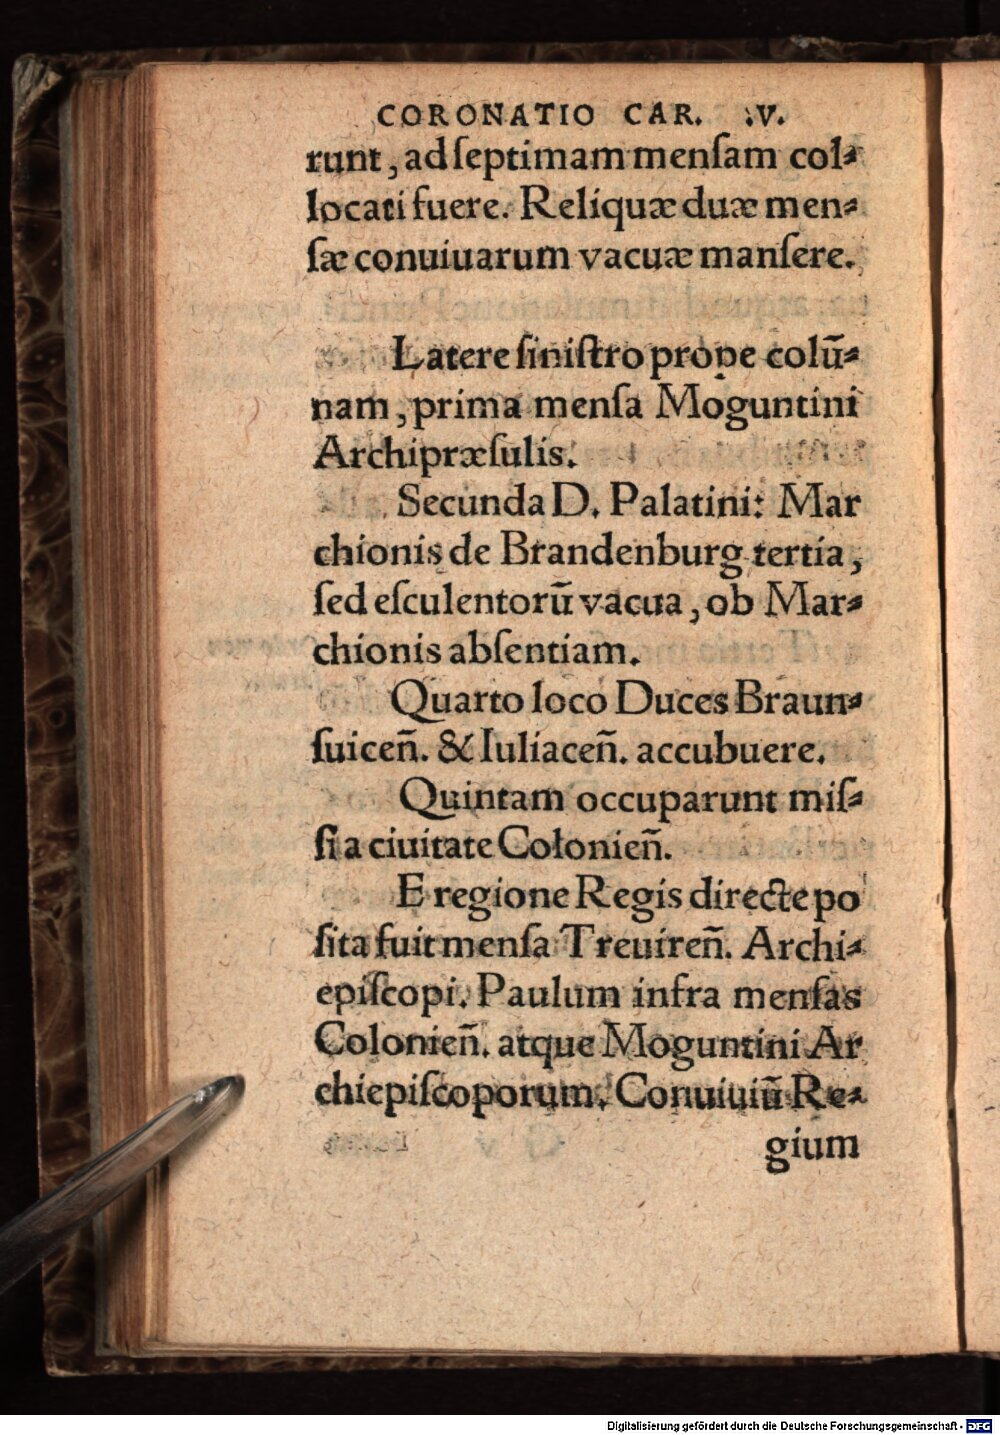 CORONATIO CAR. .V.
runt, ad ſeptimam menſam col⸗
locati fuere. Reliquæ duæ men⸗
ſæ conuiuarum vacuæ manſere.
Latere ſiniſtro prope colū⸗
nam, prima menſa Moguntini
Archipræſulis.
Secunda D. Palatini: Mar
chionis de Brandenburg tertia,
ſed eſculentorū vacua, ob Mar⸗
chionis abſentiam.
Quarto loco Duces Braun⸗
ſuiceñ. & Iuliaceñ. accubuere.
Quintam occuparunt miſ⸗
ſi a ciuitate Colonieñ.
E regione Regis directe po
ſita fuit menſa Treuireñ. Archi⸗
epiſcopi. Paulum infra menſas
Colonieñ. atque Moguntini Ar
chiepiſcoporum. Conuiuiū Re⸗
gium
Digitalisierung gefördert durch die Deutsche Forschungsgemeinschaft - DFG